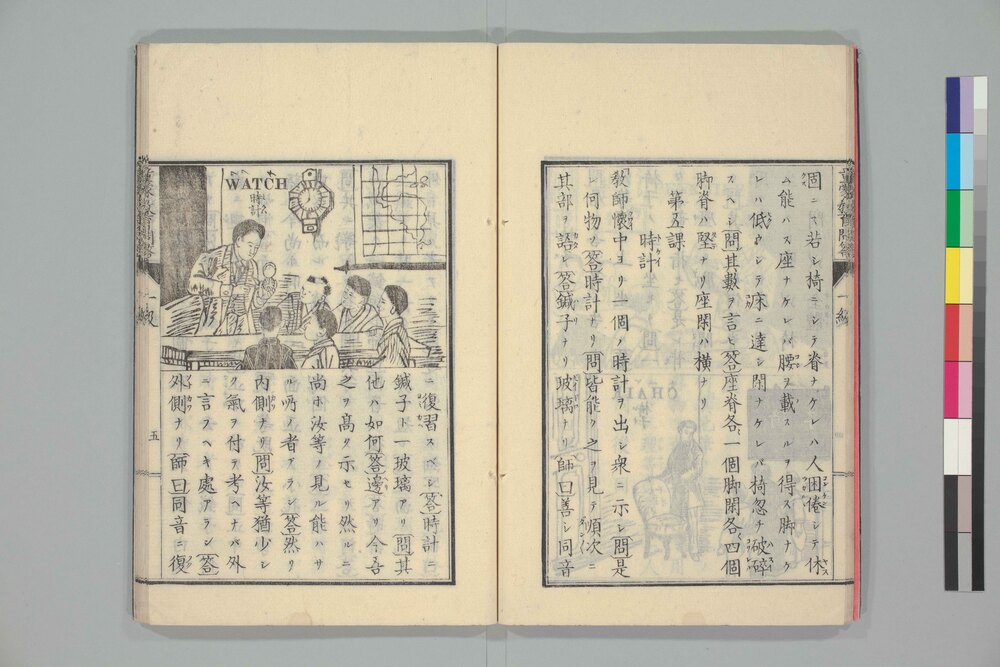 固ニス若シ椅ニシテ脊ナケレハ人困倦シテ休
ム能ハス座ナケレバ腰ヲ載スルヲ得ス脚ナケ
レハ低クシテ床ニ達シ閑ナケレバ椅忽チ破碎
スヘシ問其數ヲ言ヒ答座脊各一個脚閑各四個
脚脊ハ堅ナリ座閑ハ横ナリ
第五課 時計
敎師懷中ヨリ一個ノ時計ヲ出シ衆ニ示シ問是
レ何物ゾ答時計ナリ問皆能ク之ヲ見テ順次ニ
其部ヲ語レ答鍼子ナリ玻璃ナリ師曰善シ同音
WATCH
時計
ニ復習スベシ答時計ニ
鍼子ト玻璃アリ問其
他ハ如何答邊アリ今吾
之ヲ高ク示セリ然ルニ
尚ホ汝等ノ見ル能ハサ
ル所ノ者アラン答然リ
内側ナリ問汝等猶少シ
ク氣ヲ付テ考ヘナバ外
ニ言フヘキ處アラン答
外側ナリ師曰同音ニ復
一級
五